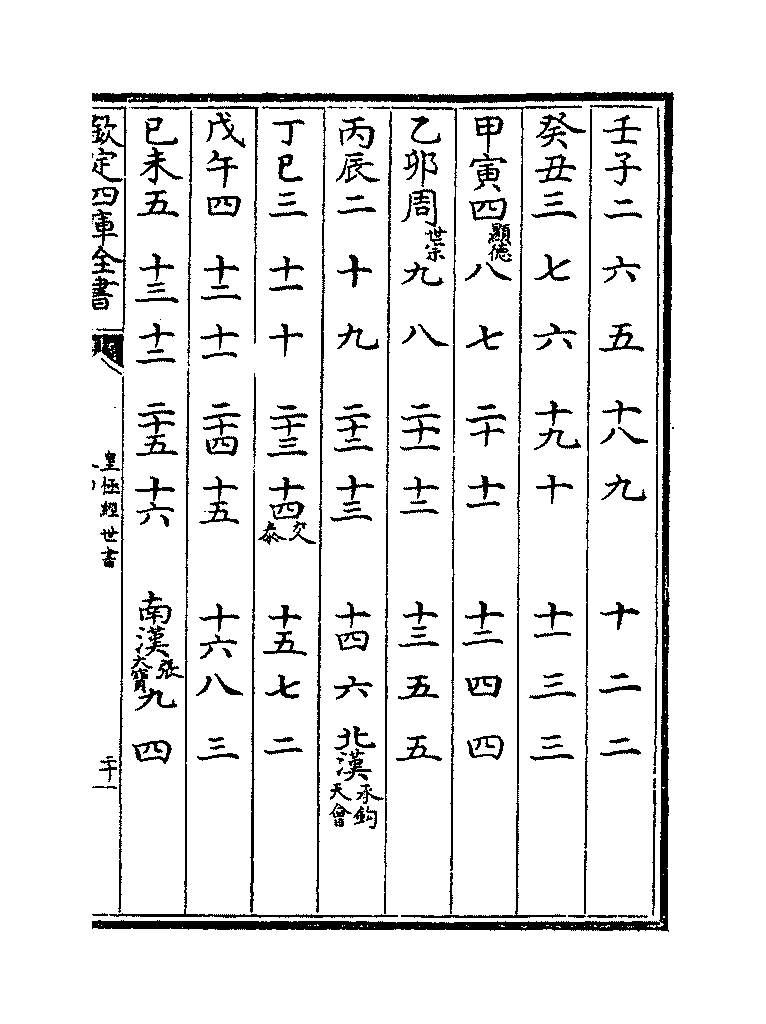 壬子二　六　五　十八　九　十　二　二
癸丑三　七　六　十九　十　十一　三　三
甲寅四顯德　八　七　二十　十一　十二　四　四
乙卯周世宗　九　八　二十一　十二　十三　五　五
丙辰二　十　九　二十二　十三　十四　六　北漢承鈞天會
丁巳三　十一　十　二十三　十四交泰　十五　七　二
戊午四　十二　十一　二十四　十五　十六　八　三
己未五　十三　十二　二十五　十六　南漢張大寶九　四
欽定四庫全書　皇極經世書　二十一